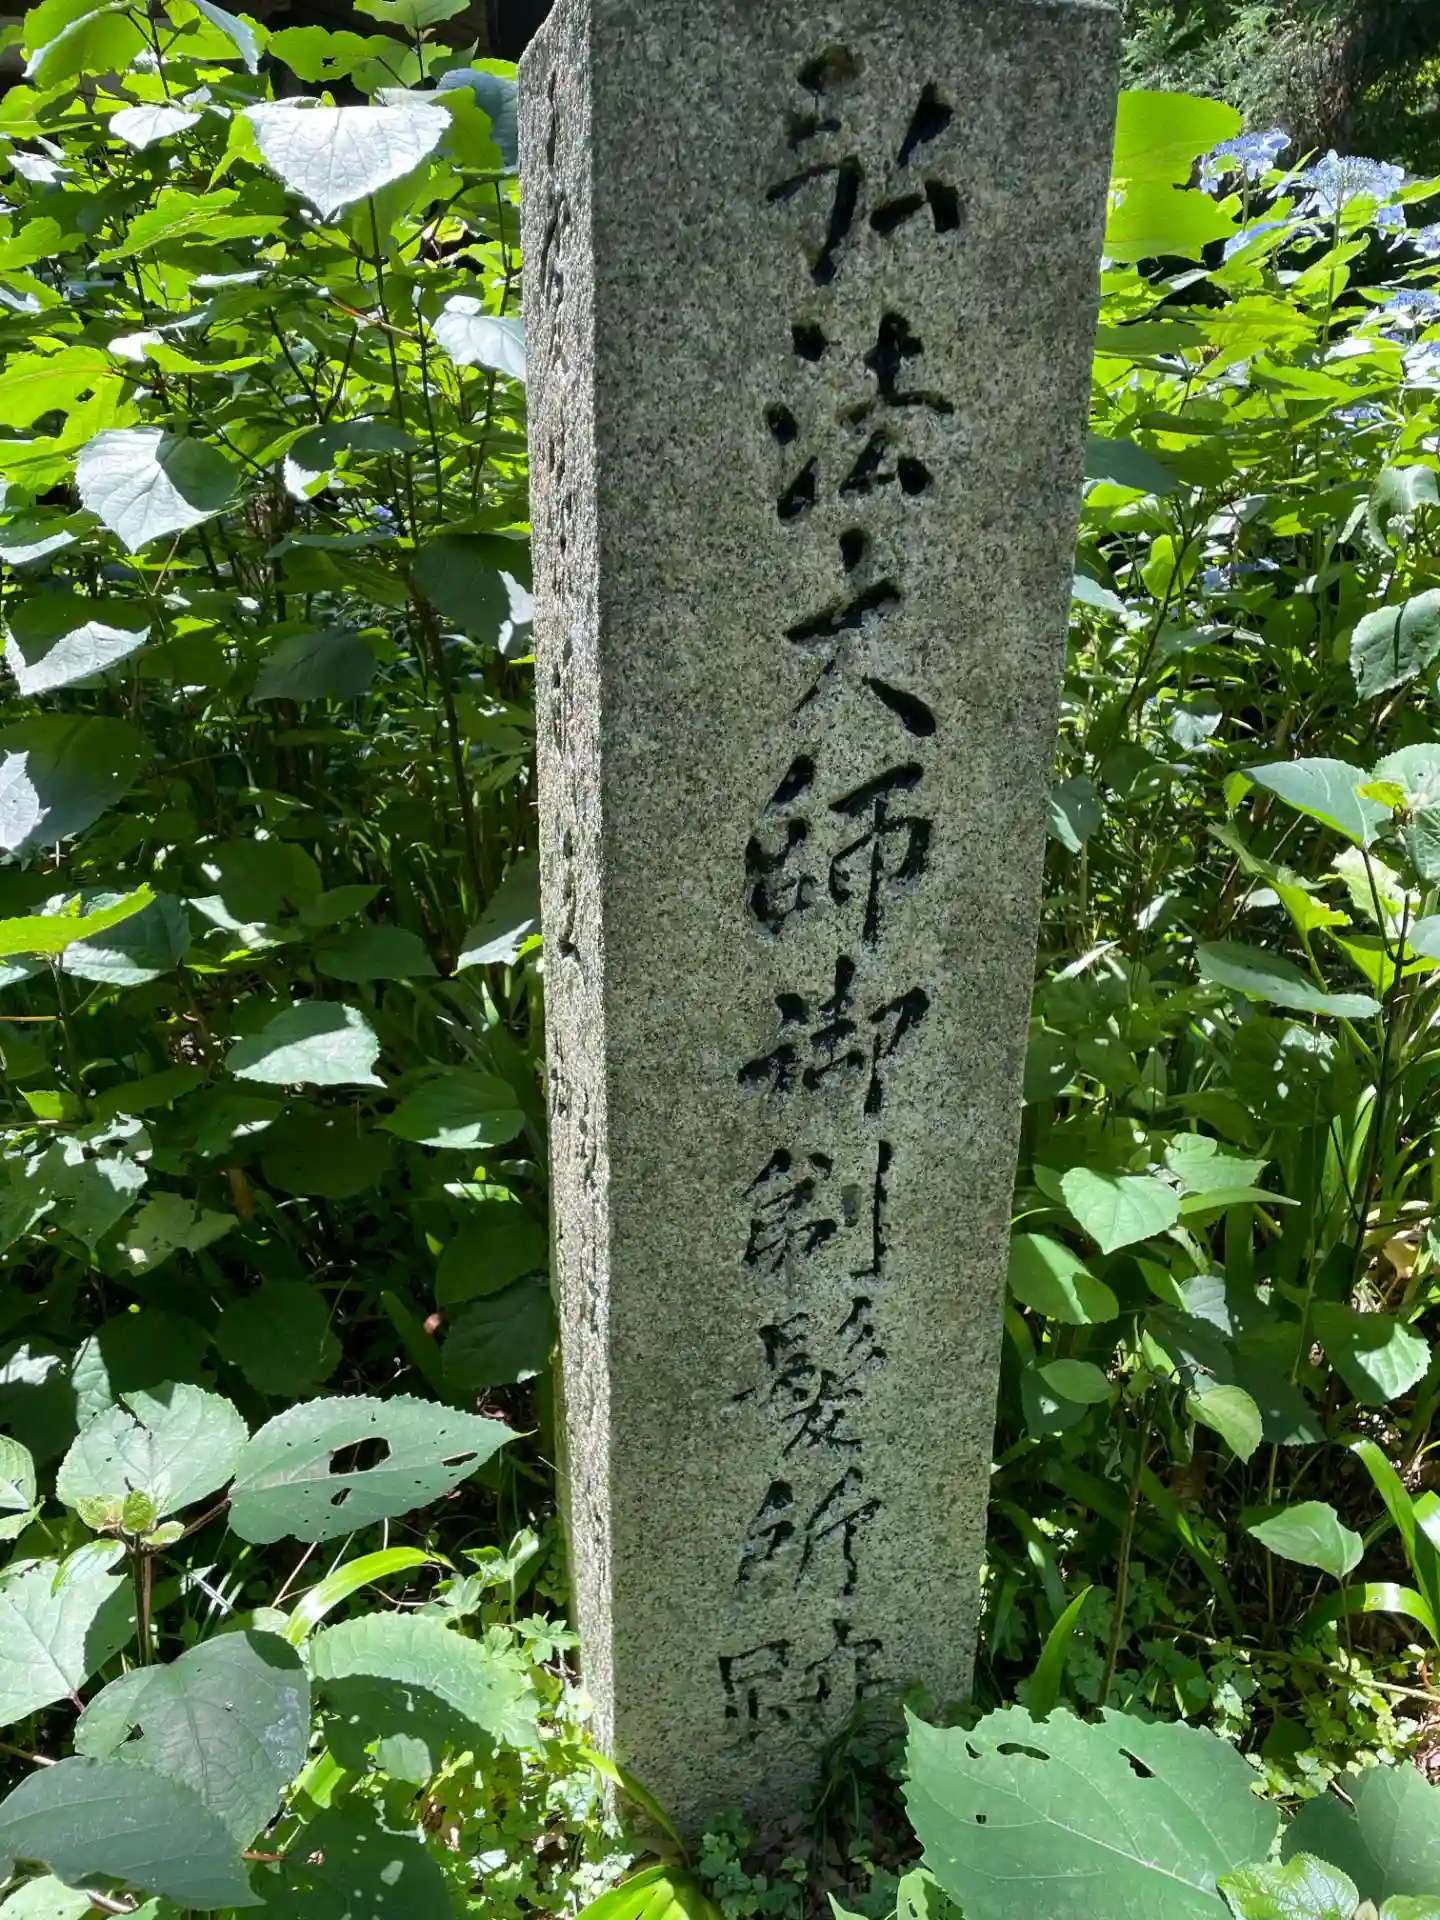 弘法大師御剃髪所跡